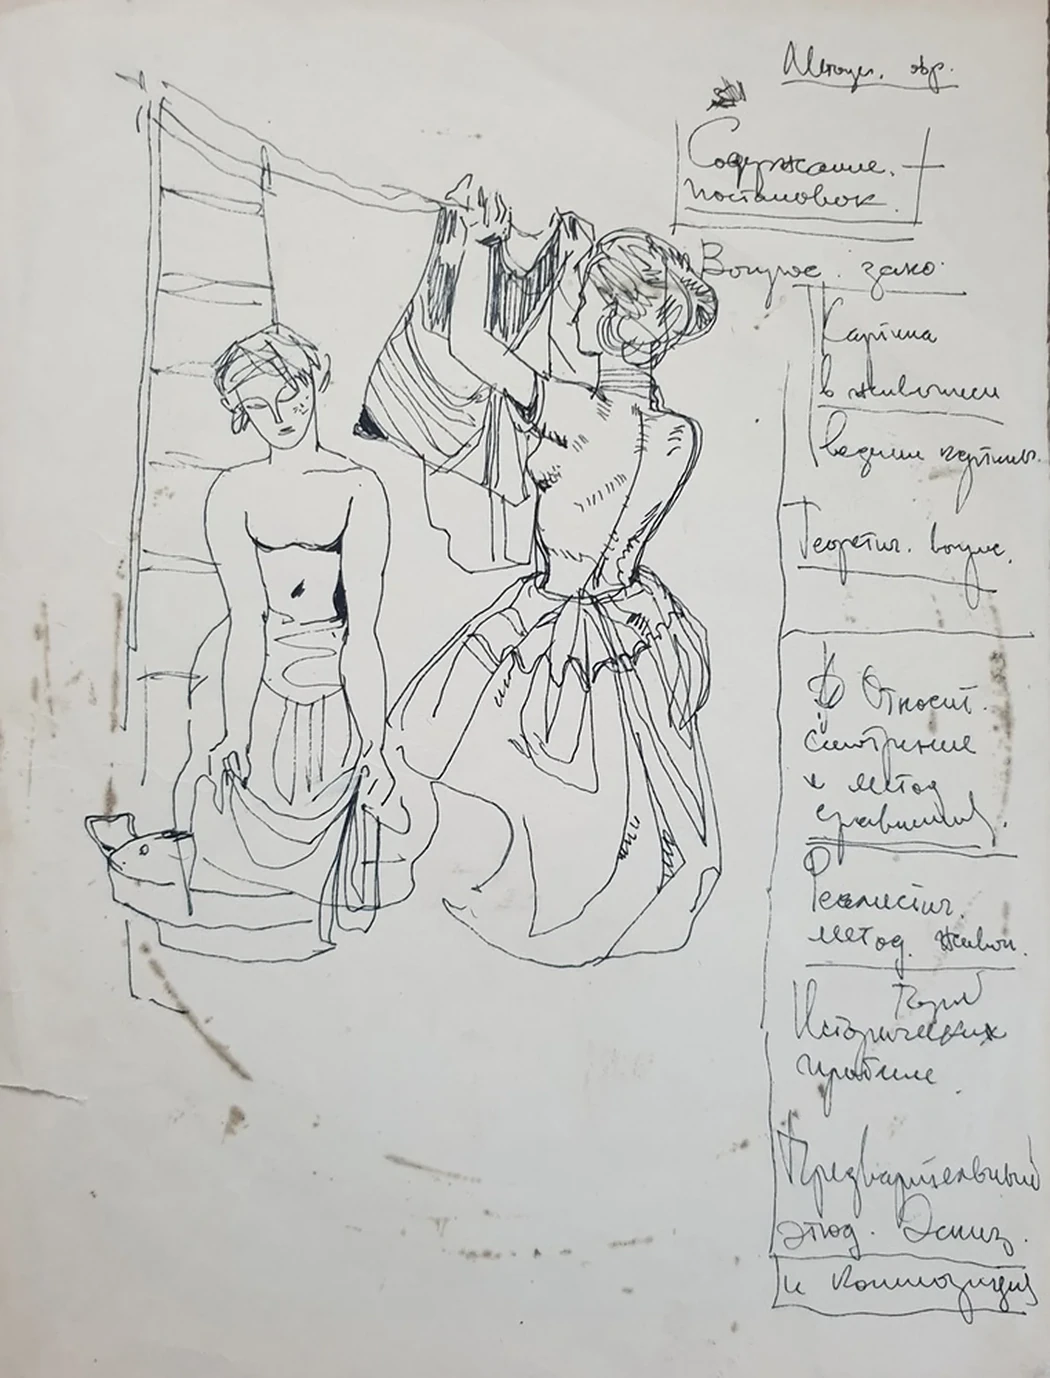 Методич. обр.
Содержание.
постановок.
Вопрос. зако
Картина
в живописи
ведении картины.
Теоретич. вопрс.
Относит.
смотрение
и метод
сравнения.
Реалистич.
метод. живоп.
Исторических
Предварительный
этюд. Эскиз.
и композиция